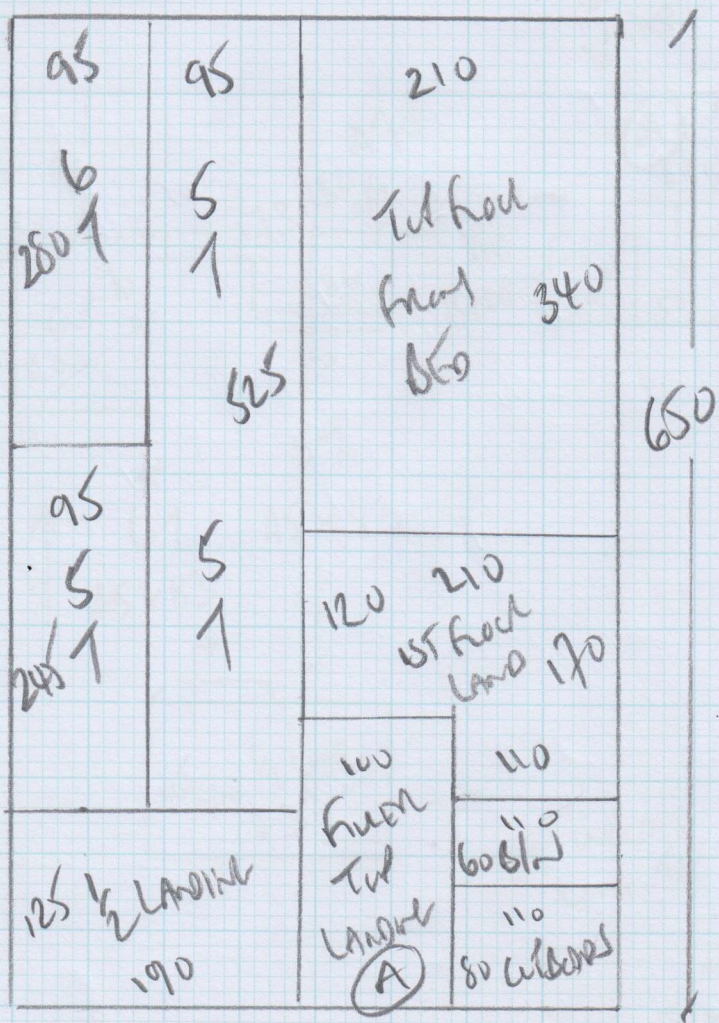 95
6
280 1
95
5
1
525
5
1
210
Top Floor
Front
BED
340
650
95
5
245 1
120
210
1ST FLOOR
LAND
170
110
100
FILLER
TOP
LANDING
A
110
60 BIN
110
80 CUPBOARDS
125 1/2 LANDING
190